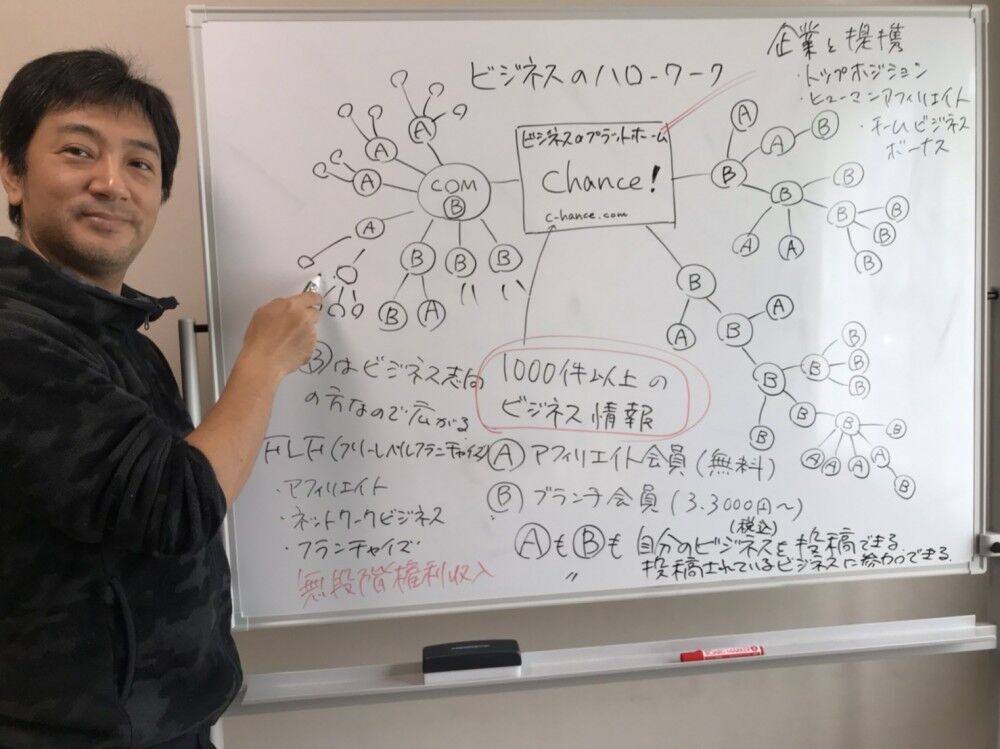 企業と提携
・トップポジション
・ヒューマンアフィリエイト
・チームビジネス
ボーナス
ビジネスのハローワーク
ビジネスのプラットホーム
Chance!
c-hance.com
COM
B
A
A
A
A
B
B
B
B
A
A
B
A
B
B
B
B
B
B
A
A
B
A
B
A
B
B
B
B
B
B
B
B
B
A
A
A
A
B
1000件以上の
ビジネス情報
Bはビジネス志向
の方なので広がる
FLF(フリーレベルフランチャイズ)
・アフィリエイト
・ネットワークビジネス
・フランチャイズ
無段階権利収入
A アフィリエイト会員(無料)
B ブランチ会員(3.3000円〜)
(税込)
AもBも 自分のビジネスを投稿できる
〃 投稿されているビジネスに参加できる.
BOARD MARKER